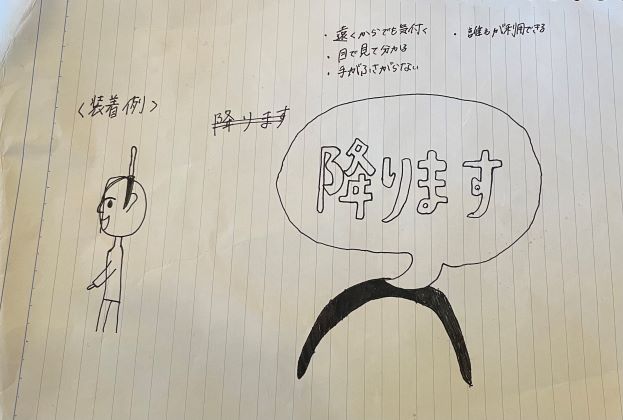 ・遠くからでも気付く
・目で見て分かる
・手がふさがらない
・誰もが利用できる
〈装着例〉
降ります
降ります